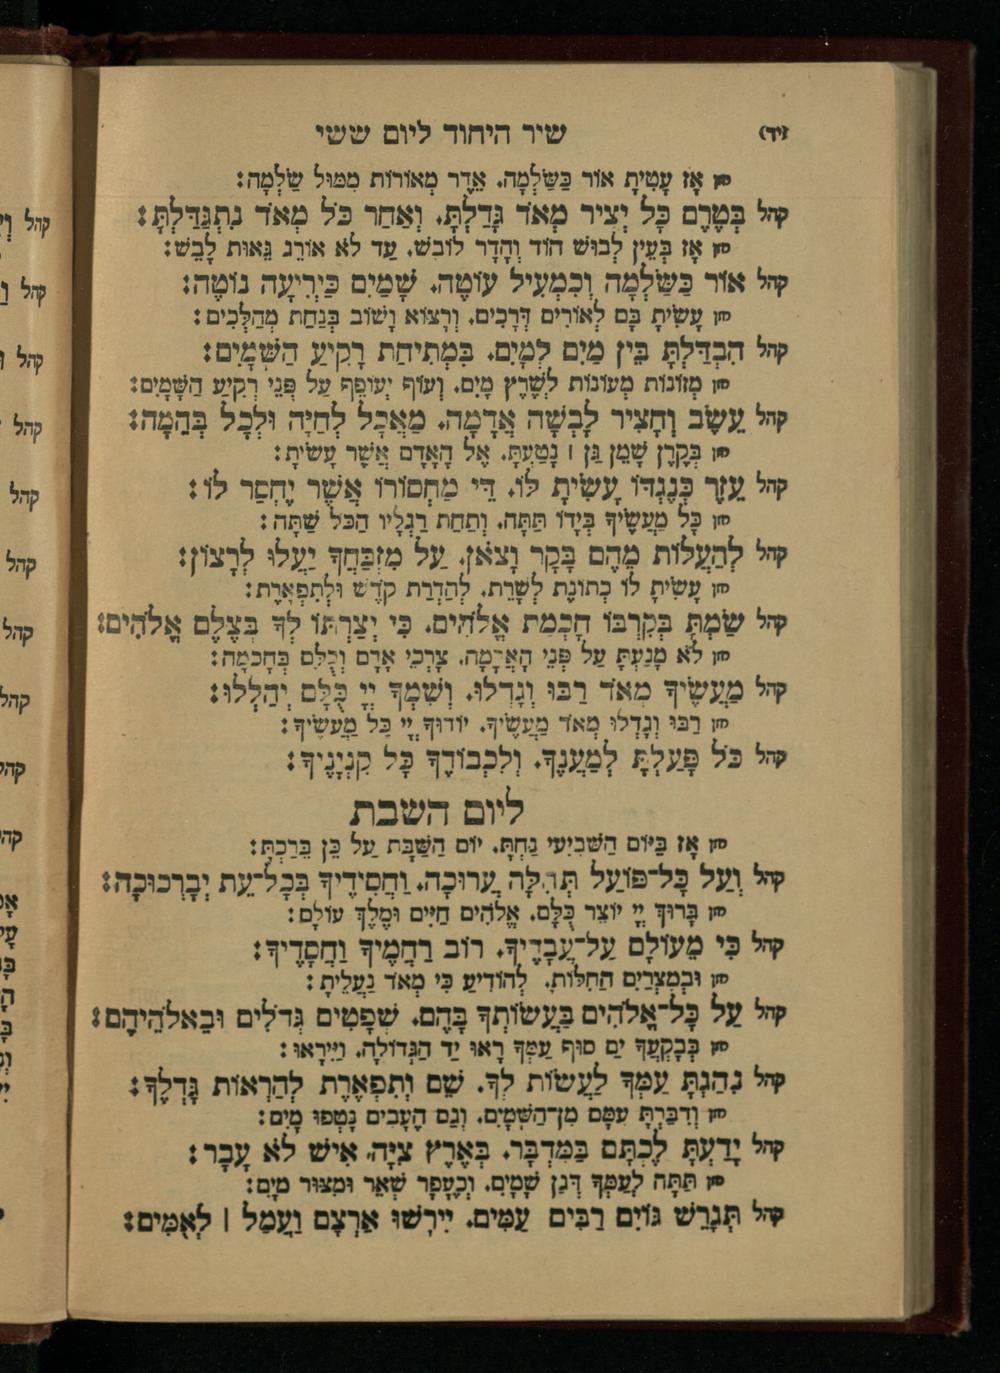 (יד) שיר היחוד ליום ששי
חזן אָז עָטִיתָ אוֹר כַּשַּׂלְמָה. אֶדֶר מְאוֹרוֹת מִמּוּל שַׂלְמָה:
קהל בְּטֶרֶם כָּל יְצִיר מְאֹד גָּדַלְתָּ. וְאַחַר כֹּל מְאֹד נִתְגַּדַּלְתָּ:
חזן אָז בְּעֵין לְבוּשׁ הוֹד וְהָדָר לוֹבֵשׁ. עַד לֹא אוֹרֵג גֵּאוּת לָבֵשׁ:
קהל אוֹר כַּשַּׂלְמָה וְכִמְעִיל עוֹטֶה. שָׁמַיִם כַּיְרִיעָה נוֹטֶה:
חזן עָשִׂיתָ בָּם לְאוֹרִים דְּרָכִים. וְרָצוֹא וָשׁוֹב בְּנַחַת מְהַלְּכִים:
קהל הִבְדַּלְתָּ בֵּין מַיִם לְמָיִם. בִּמְתִיחַת רָקִיעַ הַשָּׁמָיִם:
חזן מְזוֹנוֹת מְעוֹנוֹת לְשֶׁרֶץ מָיִם. וְעוֹף יְעוֹפֵף עַל פְּנֵי רְקִיעַ הַשָּׁמָיִם:
קהל עֵשֶׂב וְחָצִיר לָבְשָׁה אֲדָמָה. מַאֲכָל לְחַיָּה וּלְכָל בְּהֵמָה:
חזן בְּקֶרֶן שָׁמֵן גַּן ׀ נָטַעְתָּ. אֶל הָאָדָם אֲשֶׁר עָשִׂיתָ:
קהל עֵזֶר כְּנֶגְדּוֹ עָשִׂיתָ לּוֹ. דֵּי מַחְסוֹרוֹ אֲשֶׁר יֶחְסַר לוֹ:
חזן כָּל מַעֲשֶׂיךָ בְּיָדוֹ תַּתָּה. וְתַחַת רַגְלָיו הַכֹּל שַׁתָּה:
קהל לְהַעֲלוֹת מֵהֶם בָּקָר וָצֹאן. עַל מִזְבַּחֲךָ יַעֲלוּ לְרָצוֹן:
חזן עָשִׂיתָ לוֹ כְתוֹנֶת לְשָׁרֵת. לְהַדְרַת קֹדֶשׁ וּלְתִפְאָרֶת:
קהל שַׂמְתָּ בְּקִרְבּוֹ חָכְמַת אֱלֹהִים. כִּי יְצַרְתּוֹ לְךָ בְּצֶלֶם אֱלֹהִים:
חזן לֹא מָנַעְתָּ עַל פְּנֵי הָאֲדָמָה. צָרְכֵי אָדָם וְכֻלָּם בְּחָכְמָה:
קהל מַעֲשֶׂיךָ מְאֹד רַבּוּ וְגָדְלוּ. וְשִׁמְךָ יְיָ כֻּלָּם יְהַלְלוּ:
חזן רַבּוּ וְגָדְלוּ מְאֹד מַעֲשֶׂיךָ. יוֹדוּךָ יְיָ כָּל מַעֲשֶׂיךָ:
קהל כֹּל פָּעַלְתָּ לְמַעֲנֶךָ. וְלִכְבוֹדֶךָ כָּל קִנְיָנֶיךָ:
ליום השבת
חזן אָז בַּיּוֹם הַשְּׁבִיעִי נַחְתָּ. יוֹם הַשַּׁבָּת עַל כֵּן בֵּרַכְתָּ:
קהל וְעַל כָּל־פּוֹעַל תְּהִלָּה עֲרוּכָה. וַחֲסִידֶיךָ בְּכָל־עֵת יְבָרְכוּכָה:
חזן בָּרוּךְ יְיָ יוֹצֵר כֻּלָּם. אֱלֹהִים חַיִּים וּמֶלֶךְ עוֹלָם:
קהל כִּי מֵעוֹלָם עַל־עֲבָדֶיךָ. רוֹב רַחֲמֶיךָ וַחֲסָדֶיךָ:
חזן וּבְמִצְרַיִם הַחִלּוֹתָ. לְהוֹדִיעַ כִּי מְאֹד נַעֲלֵיתָ:
קהל עַל כָּל־אֱלֹהִים בַּעֲשׂוֹתְךָ בָּהֶם. שְׁפָטִים גְּדֹלִים וּבֵאלֹהֵיהֶם:
חזן בְּבָקְעֲךָ יַם סוּף עַמְּךָ רָאוּ יַד הַגְּדוֹלָה. וַיִּירָאוּ:
קהל נִהַגְתָּ עַמְּךָ לַעֲשׂוֹת לְךָ. שֵׁם וְתִפְאֶרֶת לְהַרְאוֹת גָּדְלֶךָ:
חזן וְדִבַּרְתָּ עִמָּם מִן־הַשָּׁמָיִם. וְגַם הֶעָבִים נָטְפוּ מָיִם:
קהל יָדַעְתָּ לֶכְתָּם בַּמִּדְבָּר. בְּאֶרֶץ צִיָּה אִישׁ לֹא עָבָר:
חזן תַּתָּה לְעַמְּךָ דְּגַן שָׁמָיִם. וְכֶעָפָר שְׁאֵר וּמִצּוּר מָיִם:
קהל תְּגָרֵשׁ גּוֹיִם רַבִּים עַמִּים. יִירְשׁוּ אַרְצָם וַעֲמַל ׀ לְאֻמִּים: